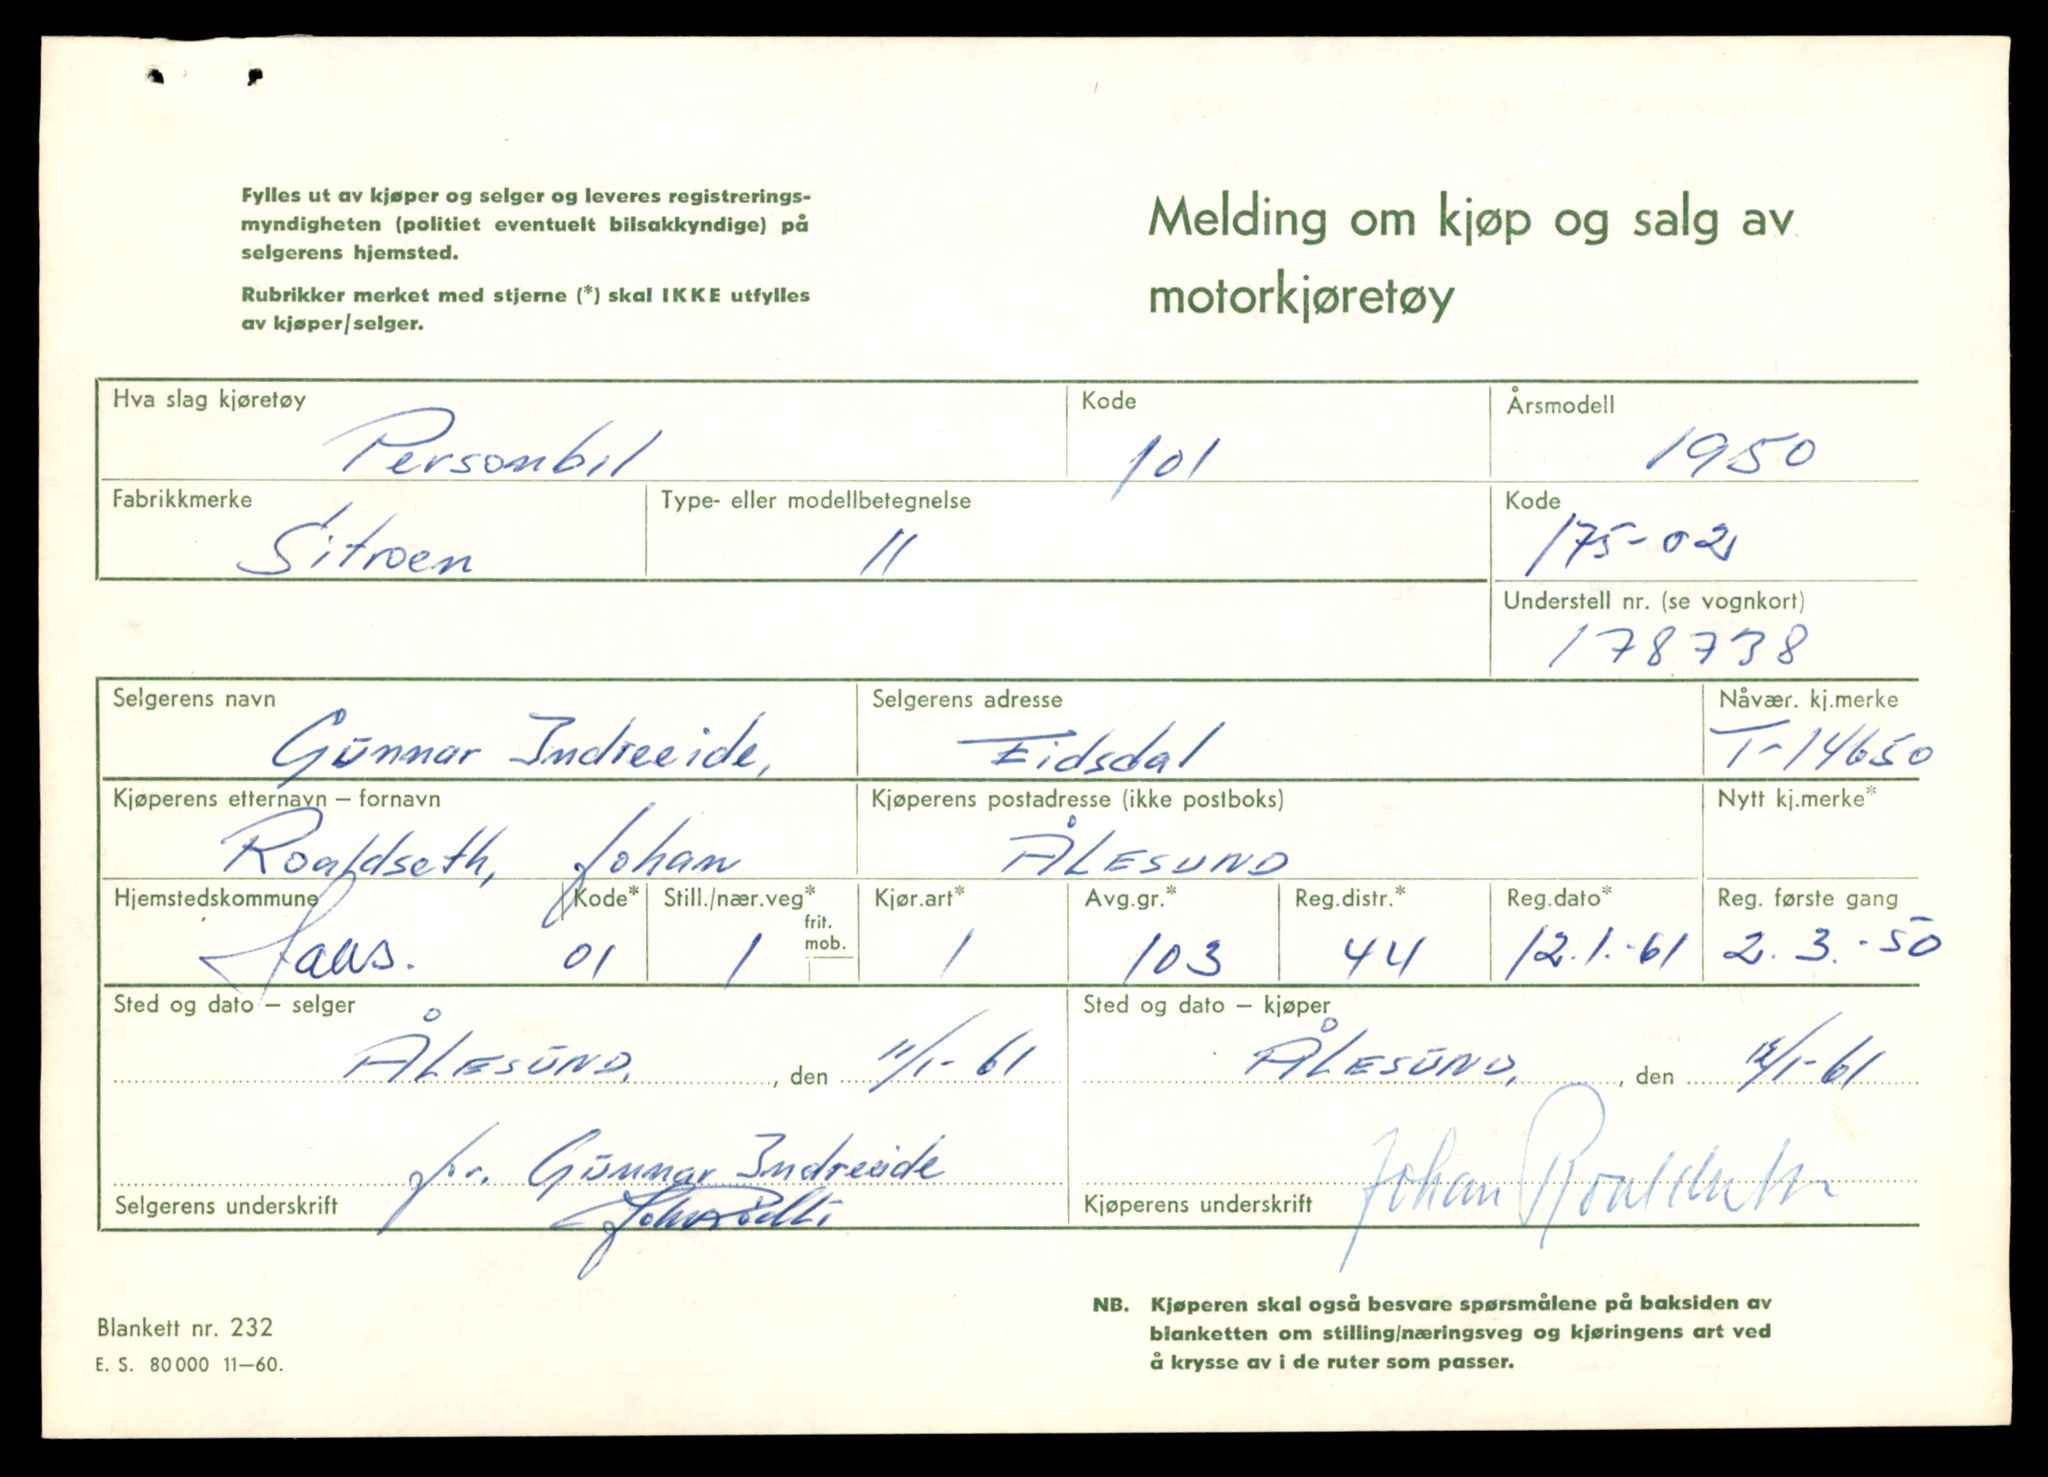 Fylles ut av kjøper og selger og leveres registrerings-
myndigheten (politiet eventuelt bilsakkyndige) på
selgerens hjemsted.
Rubrikker merket med stjerne (*) skal IKKE utfylles
av kjøper/selger.
Melding om kjøp og salg av
motorkjøretøy
Hva slag kjøretøy Kode Årsmodell
Personbil 101 1950
Fabrikkmerke Type- eller modellbetegnelse Kode
Sitroen 11 175-02
Understell nr. (se vognkort)
178738
Selgerens navn Selgerens adresse Nåvær. kj.merke
Gunnar Indreeide, Eidsdal T-14650
Kjøperens etternavn – fornavn Kjøperens postadresse (ikke postboks) Nytt kj.merke*
Roaldseth, Johan ÅLESUND
Hjemstedskommune Kode* Still./nær.veg* Kjør.art* Avg.gr.* Reg.distr.* Reg.dato* Reg. første gang
frit.
mob.
01 1 1 103 44 12.1.-61 2.3.-50
Sted og dato – selger Sted og dato – kjøper
ÅLESUND, , den 11/1-61 ÅLESUND, , den 12/1-61
fr. Gunnar Indreeide
Selgerens underskrift Kjøperens underskrift Johan Roaldseth
Blankett nr. 232
E. S. 80000 11–60.
NB. Kjøperen skal også besvare spørsmålene på baksiden av
blanketten om stilling/næringsveg og kjøringens art ved
å krysse av i de ruter som passer.